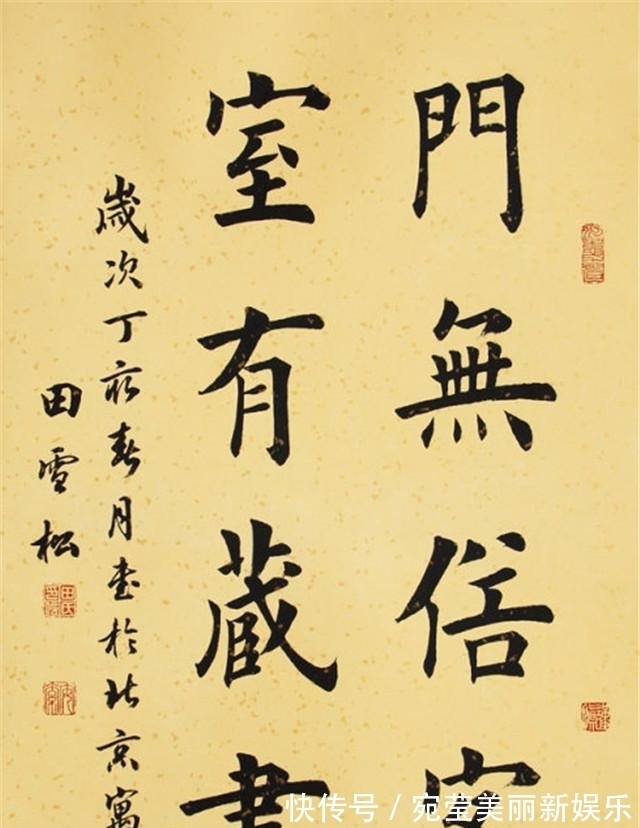 門無俗客
室有藏書
歲次丁亥春月書於北京寓
田雪松
快传号 / 宛莹美丽新娱乐